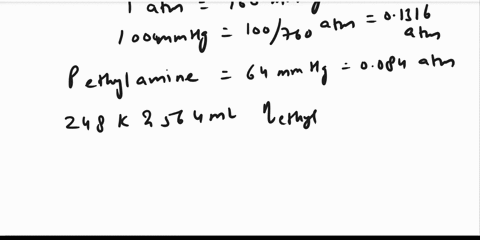 1 atm = 760 mmHg
1004mmHg = 100/760 atm = 0.1316 atm
Pethylamine = 64 mmHg = 0.084 atm
248 K & 564 mL ηethyl